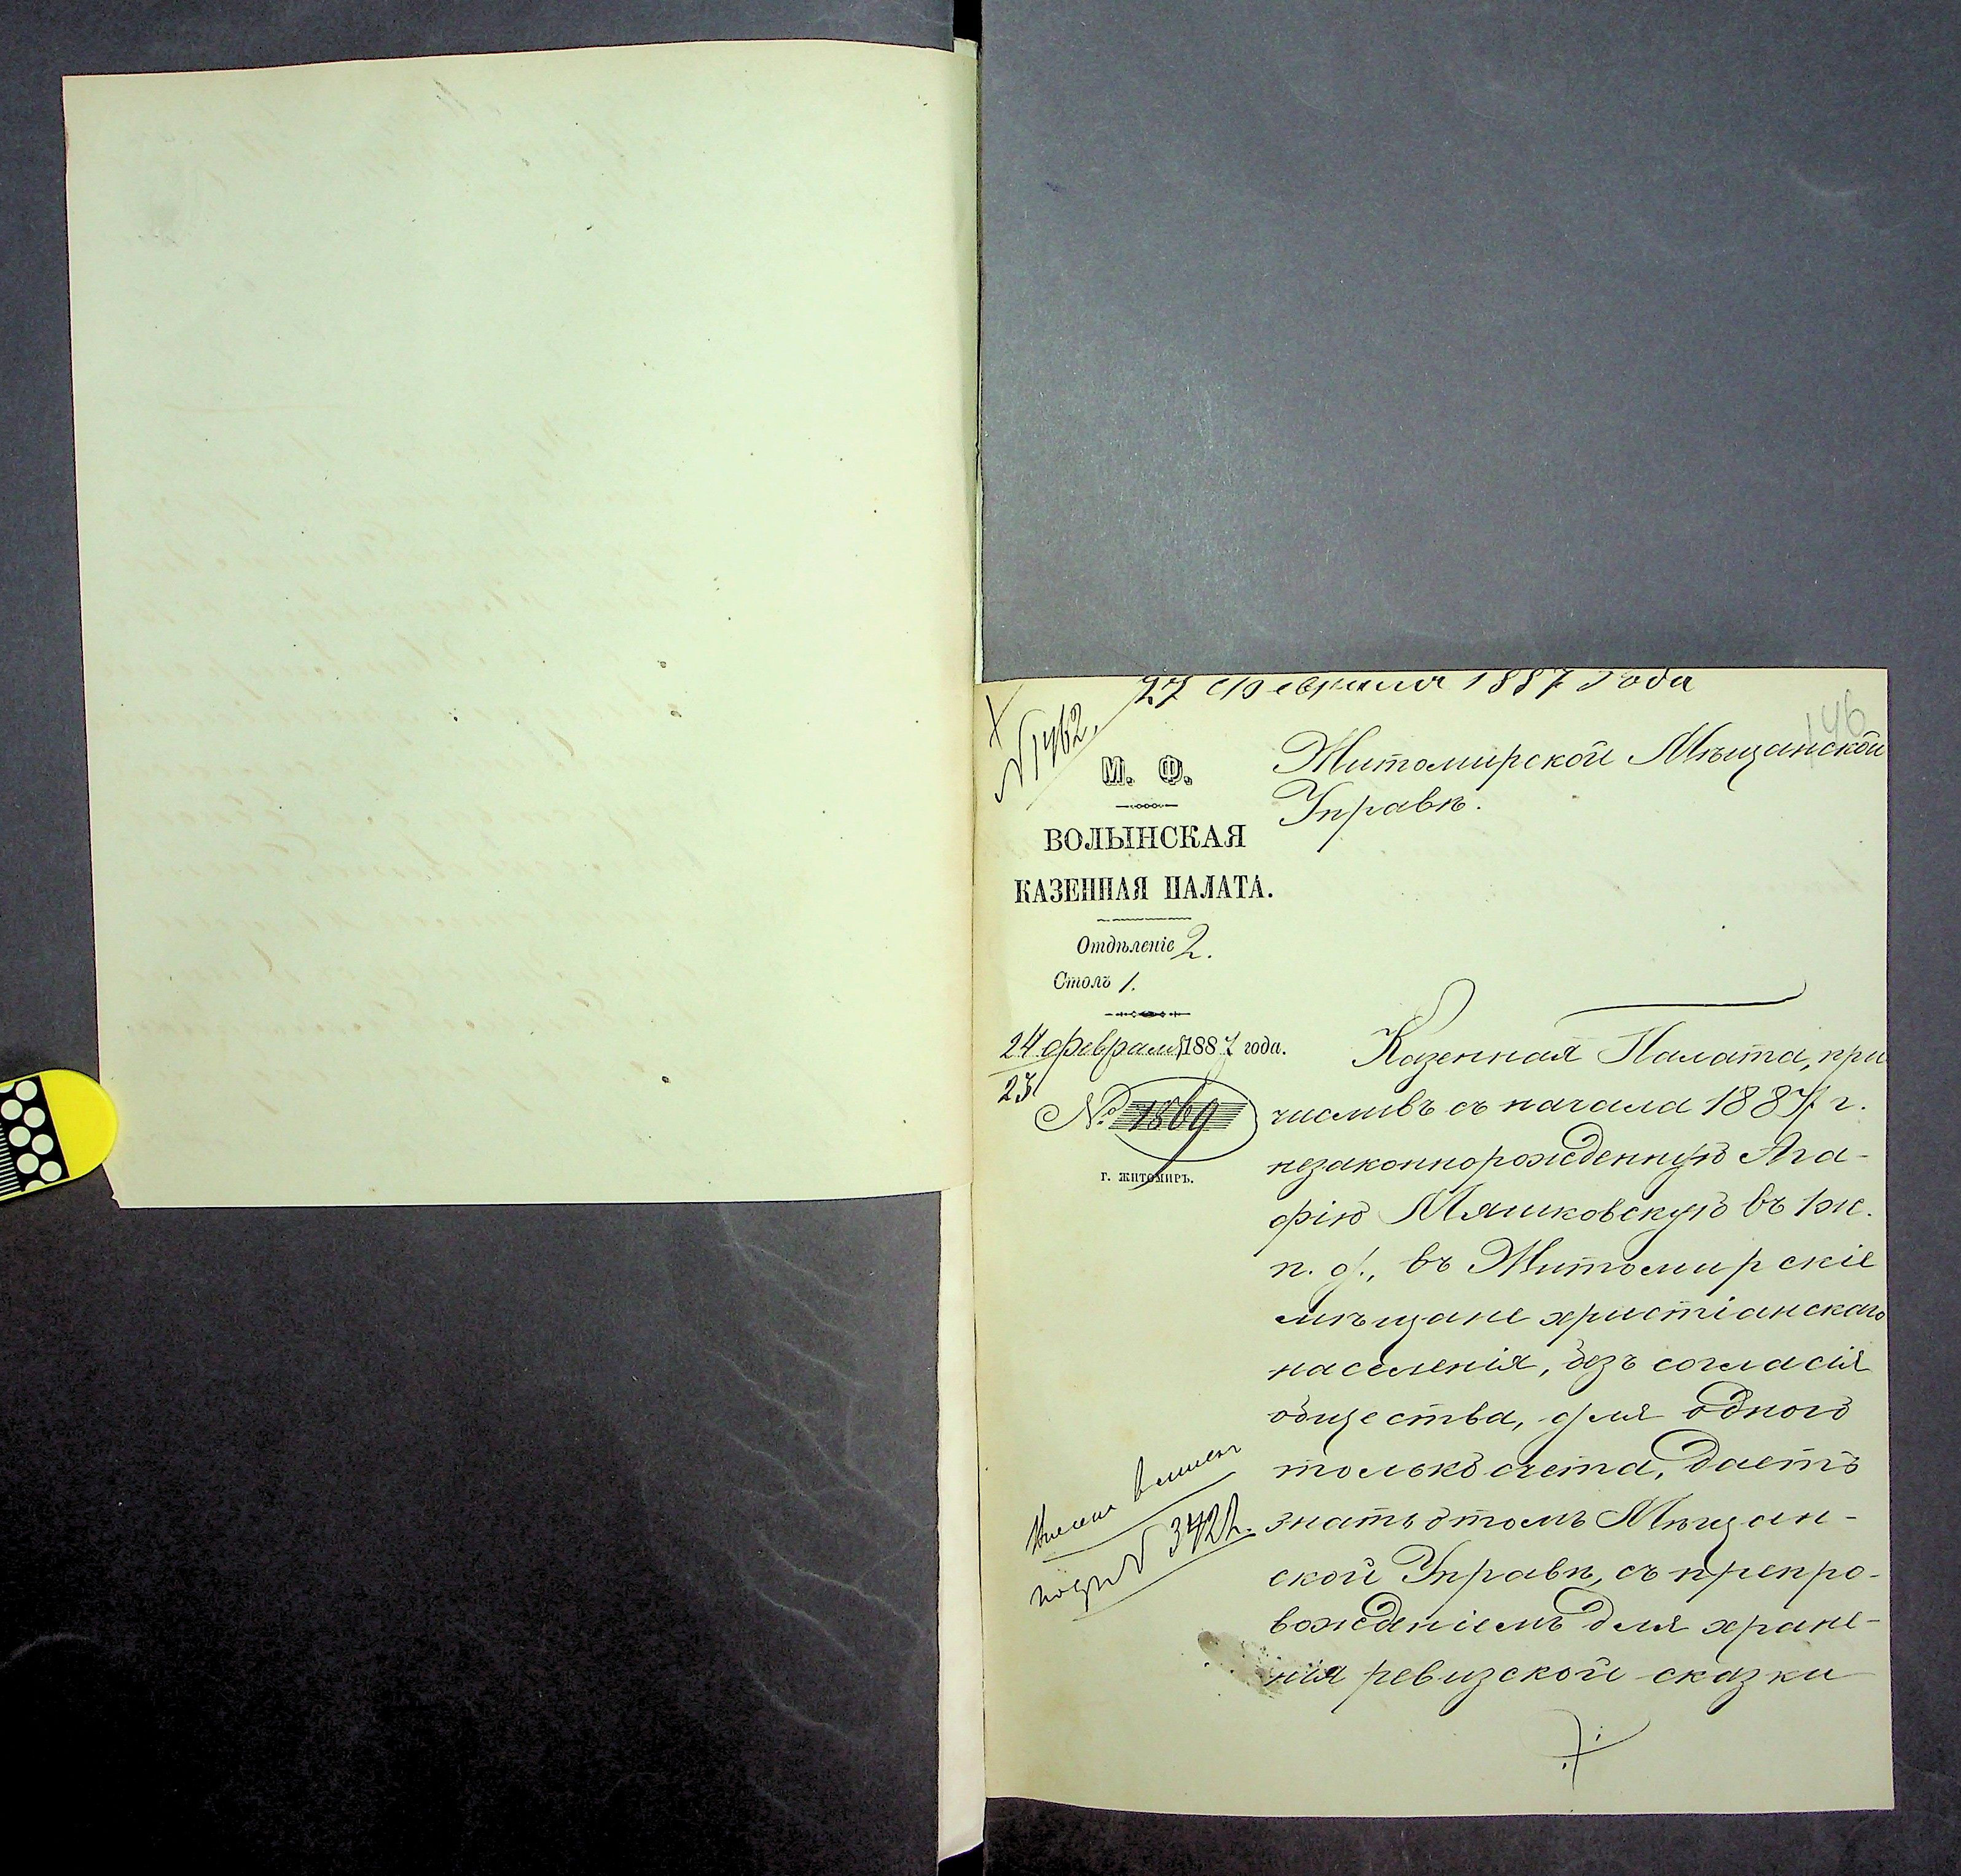 27 Февраля 1887 года
146
№ 1462.
М. Ф.
ВОЛЫНСКАЯ
КАЗЕННАЯ ПАЛАТА.
Отдѣленіе 2.
Столъ 1.
24 февраля 1887 года.
23
№ 1869
г. ЖИТОМИРЪ.
Житомирской Мѣщанской
Управѣ.
Казенная Палата, при
числивъ съ начала 1887 г.
незаконнорожденную Ага-
фію Мяшковскую въ 1 ж.
п. д., въ Житомирскіе
мѣщане христіанскаго
населенія, безъ согласія
общества, для одного
только счета, даетъ
знать о томъ Мѣщан-
ской Управѣ, съ препро-
вожденіемъ для хране-
нія ревизской сказки
подъ № 3422.